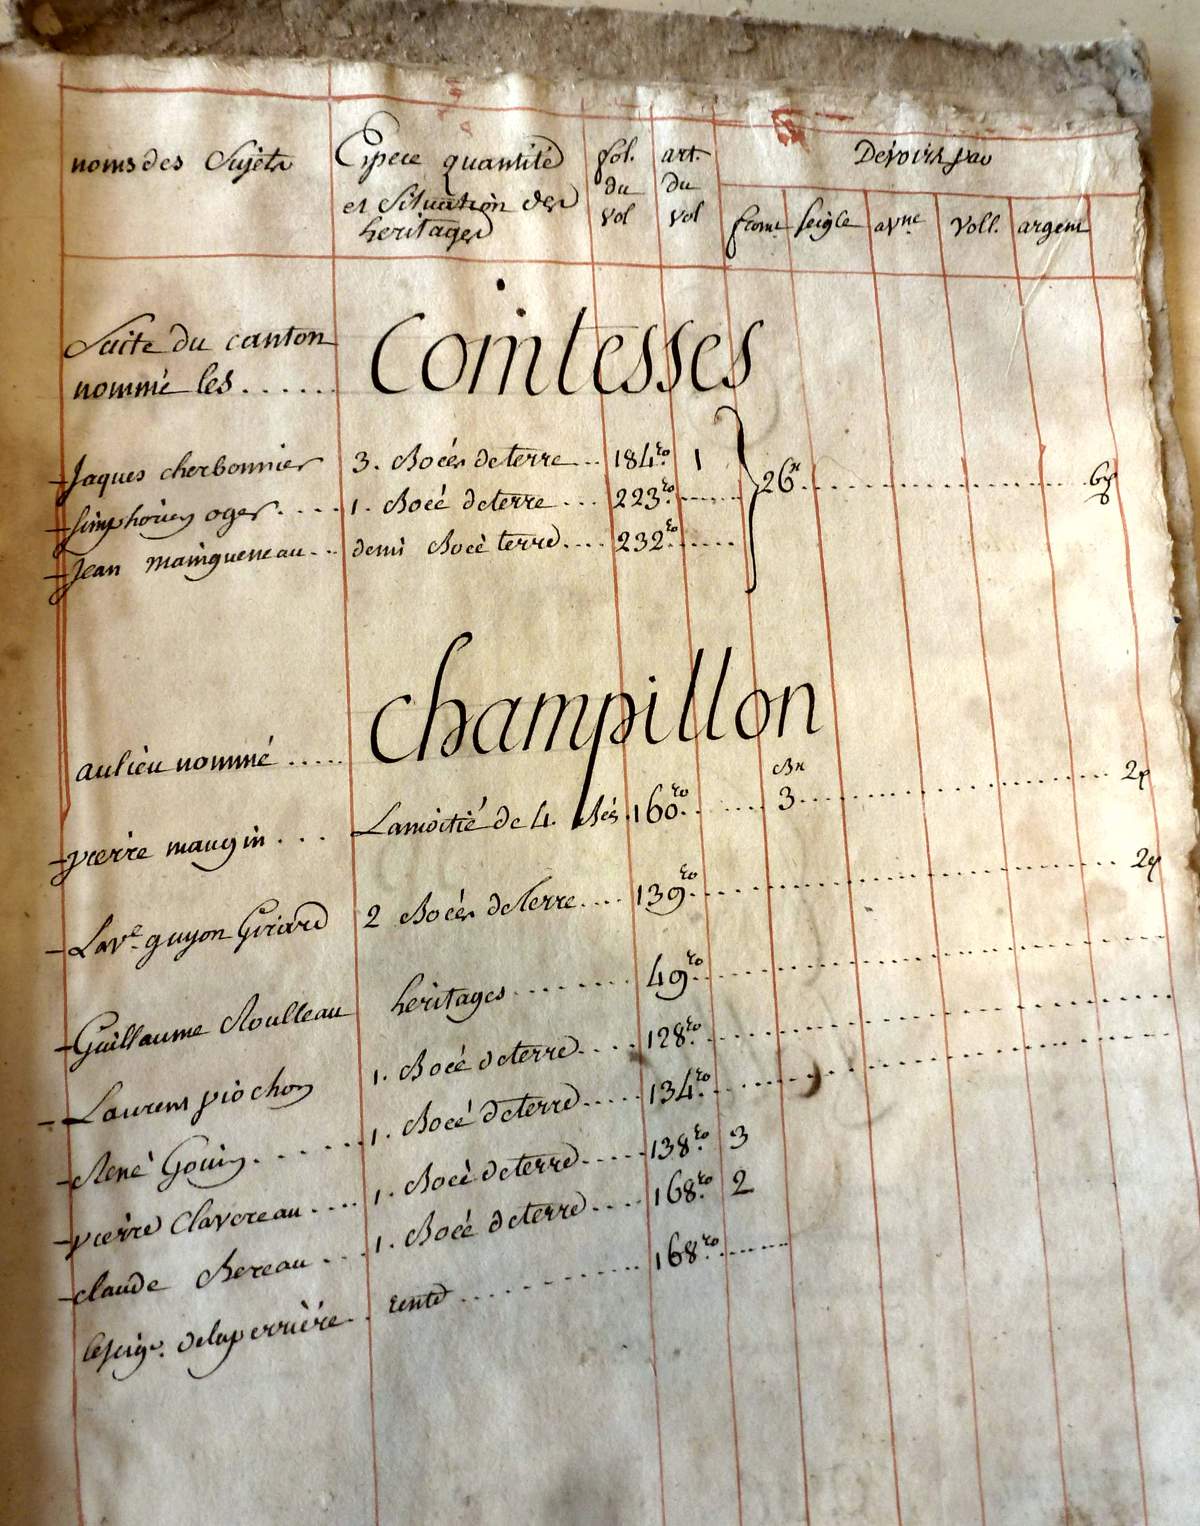 noms des Sujets
Espece quantité
et Situation des
heritages
fol.
du
vol
art.
du
vol
Devoirs par
from.t
seigle
av.ne
Voll.
argent
Suite du canton
nommé les ...... Comtesses
Jaques cherbonnier 3. Boceés de terre ... 184.ro 1
simphorien oger .... 1. Bocé de terre .... 223.ro ......
Jean maingueneau ... demi Bocé terre .... 232.ro .....
26 .................... 6
au lieu nommé ..... champillon
pierre maugin ... La moitié de 4. Bés. 160.ro ..... 3 .................... 2
La v.e guyon Girard 2 Bocés de terre .... 139.ro .................... 2
Guillaume Roulleau heritages ....... 49.ro ....................
Laurens piochon 1. Bocé de terre .... 128.ro ....................
René Gouin ...... 1. Bocé de terre .... 134.ro ....................
pierre Clavereau .... 1. Bocé de terre ..... 138.ro 3
claude Bereau ... 1. Bocé de terre .... 168.ro 2
le seig.r de la perrière . rente .......... 168.ro ......